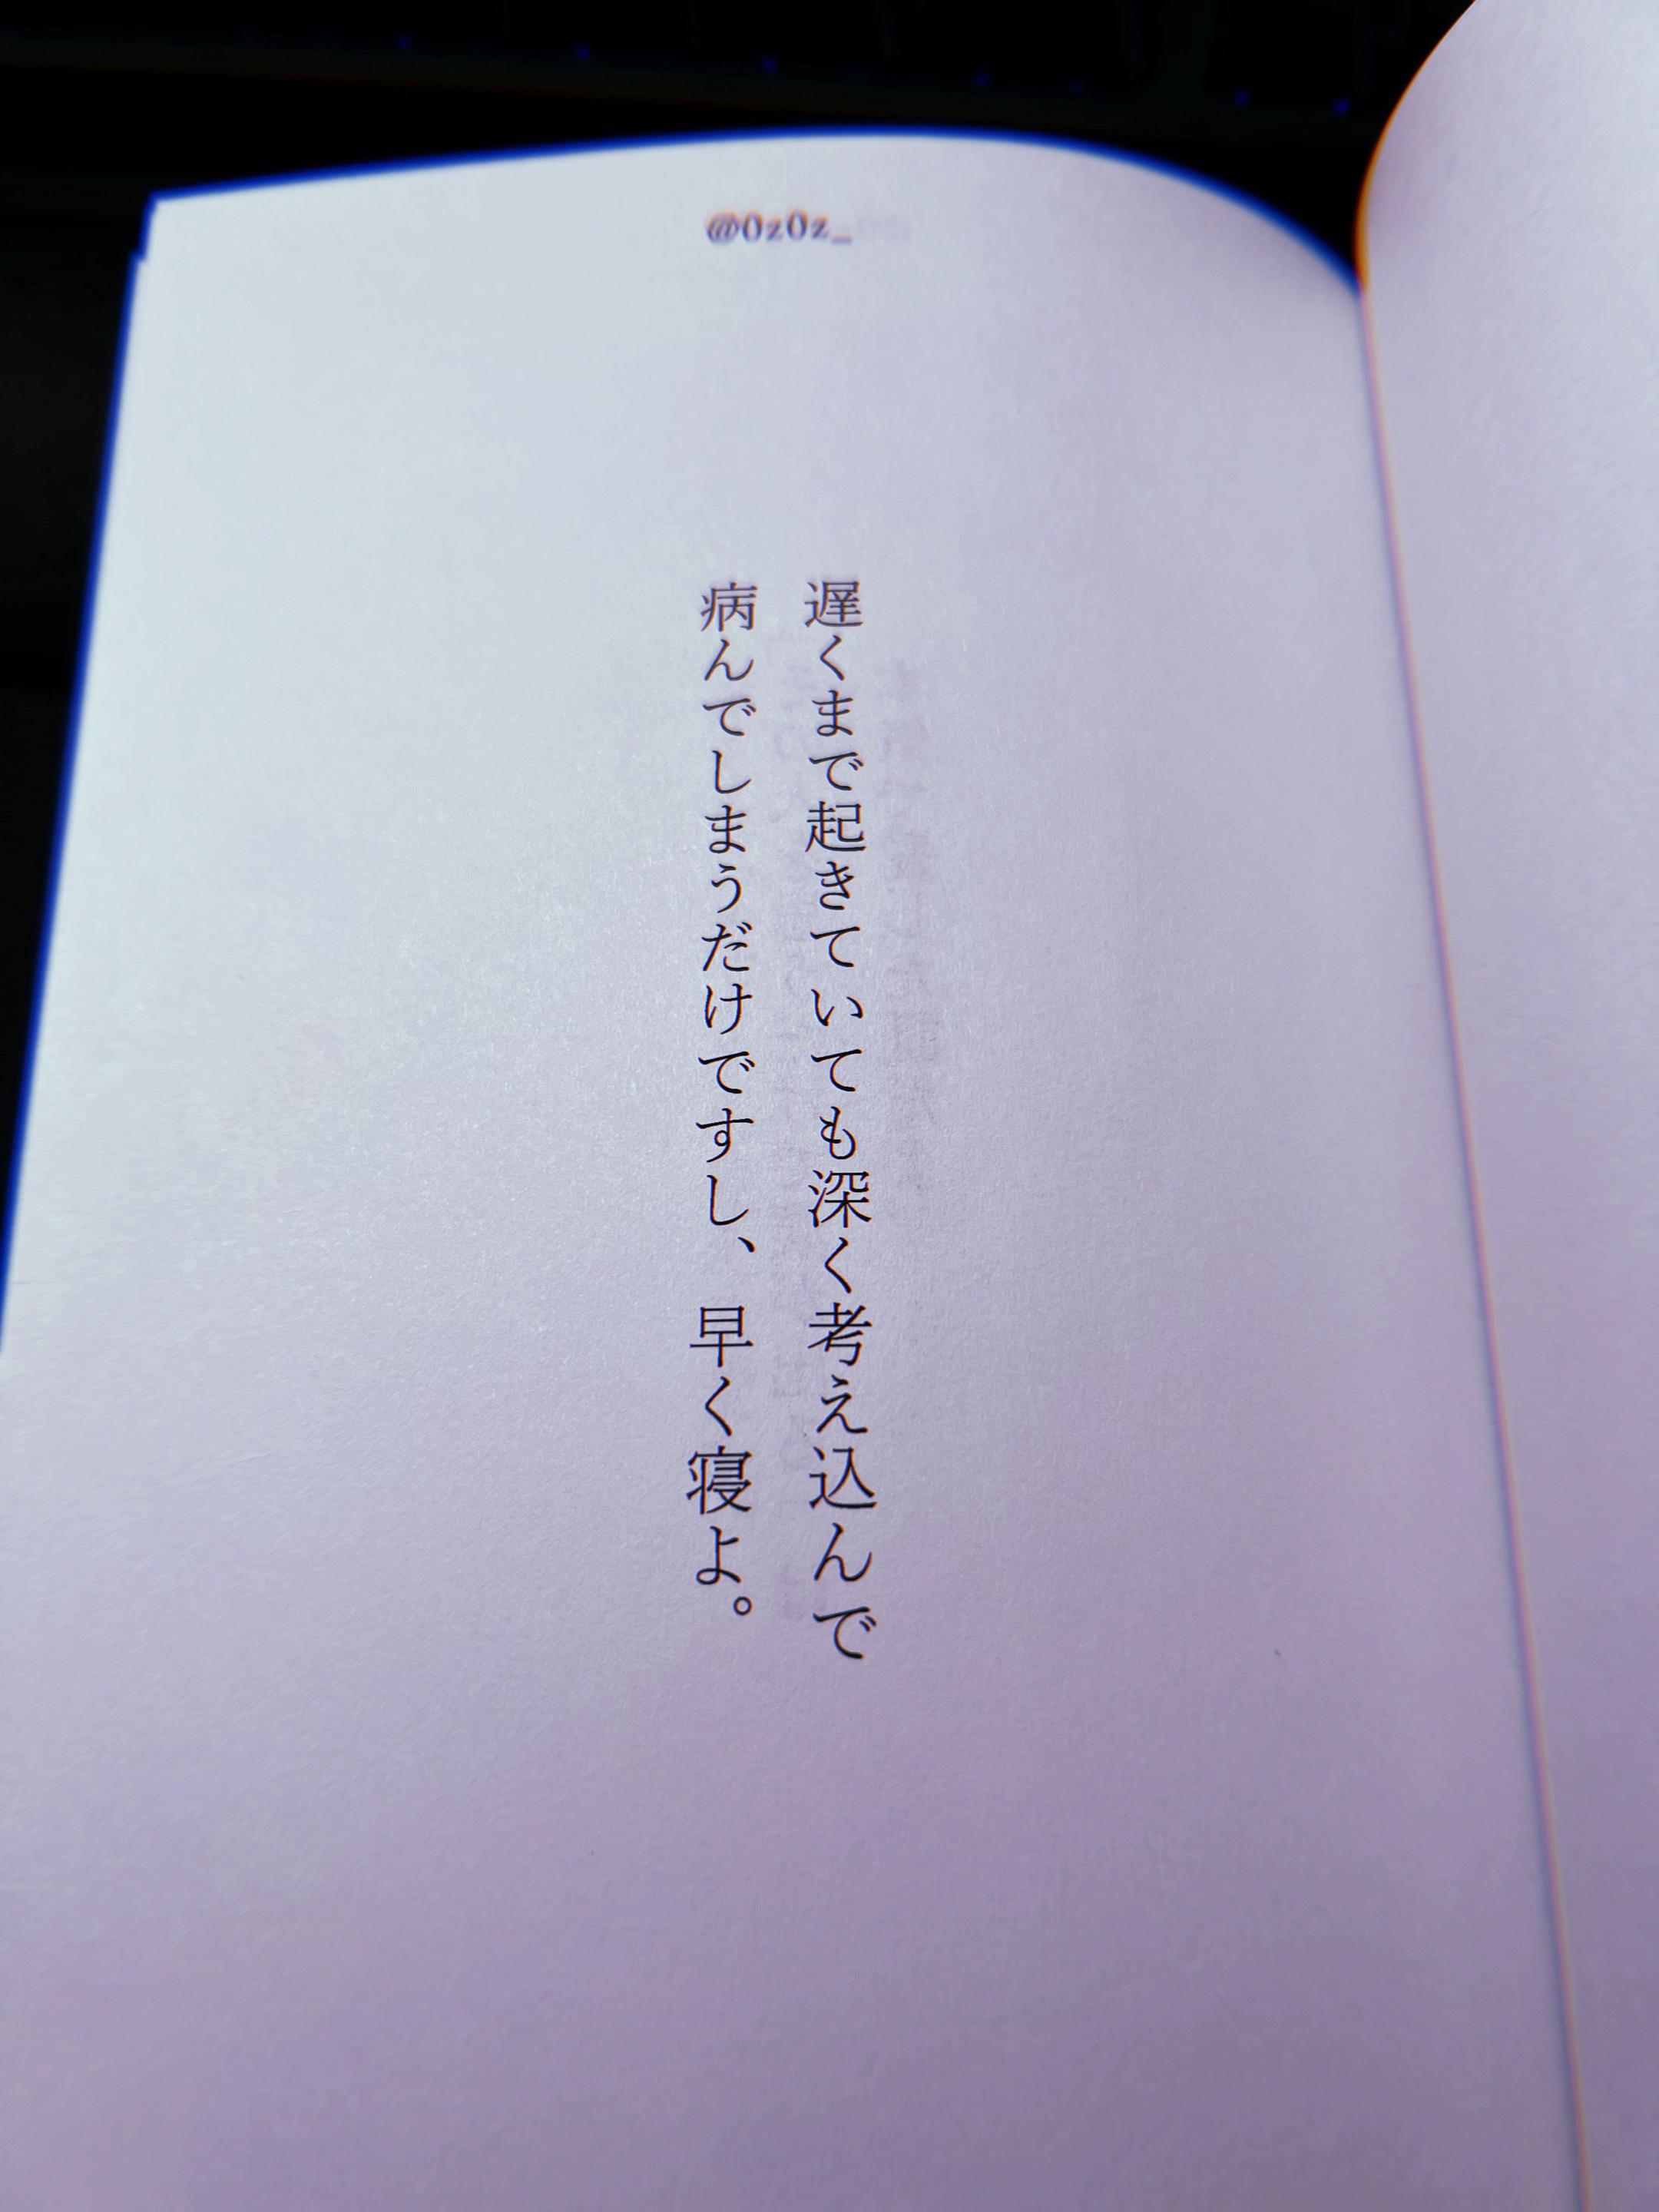 @0z0z_
遅くまで起きていても深く考え込んで
病んでしまうだけですし、早く寝よ。